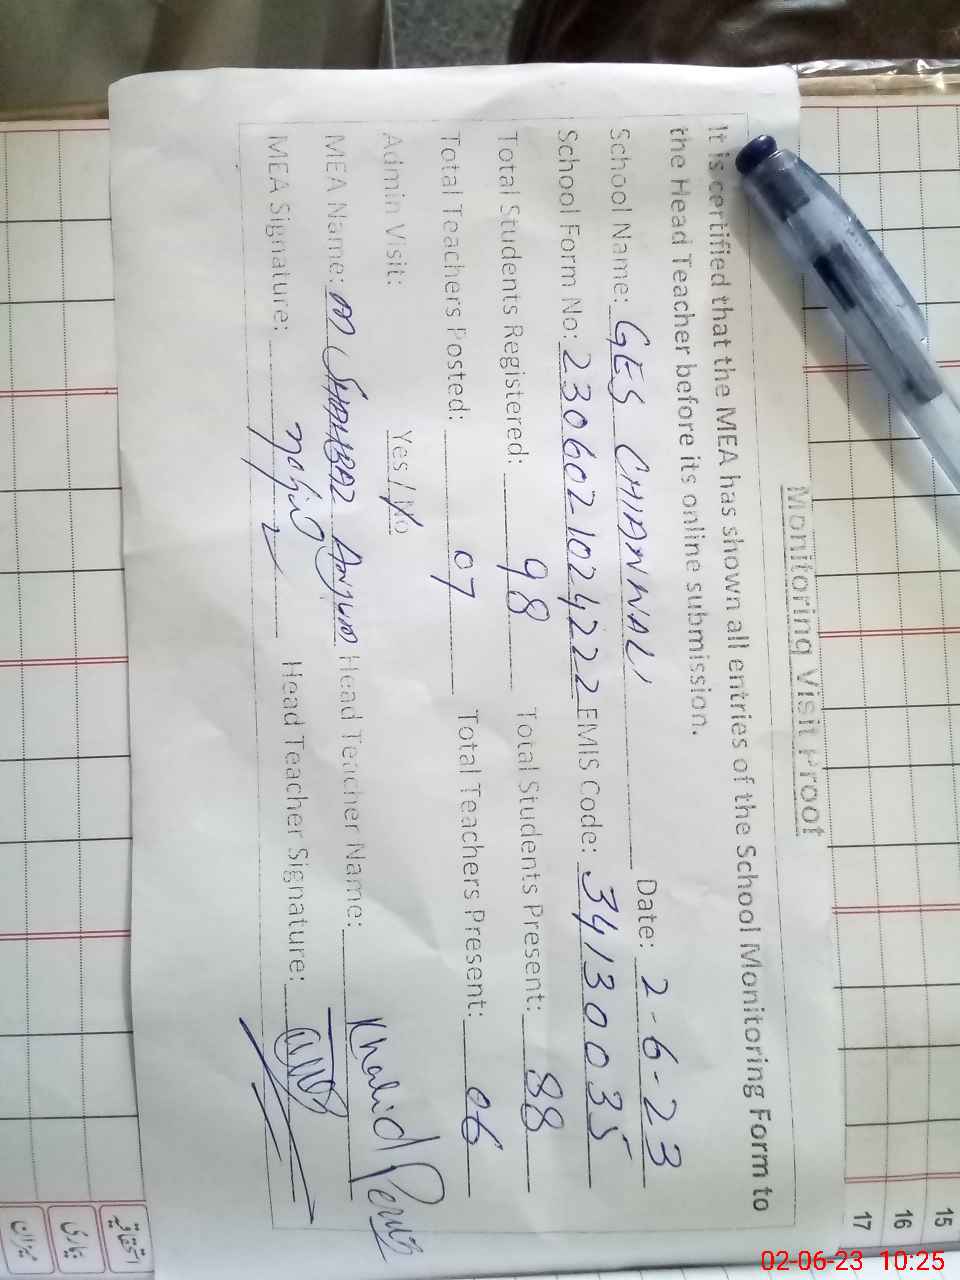 Monitoring Visit Proof
It is certified that the MEA has shown all entries of the School Monitoring Form to
the Head Teacher before its online submission.
School Name: GES CHIANWALI Date: 2-6-23
School Form No: 2306021024222 EMIS Code: 34130035
Total Students Registered: 98 Total Students Present: 88
Total Teachers Posted: 07 Total Teachers Present: 06
Admin Visit: Yes / No
MEA Name: M SHAHBAZ Anjum Head Teacher Name: Khalid Perviz
MEA Signature: Head Teacher Signature:
15
16
17
میزان
02-06-23 10:25